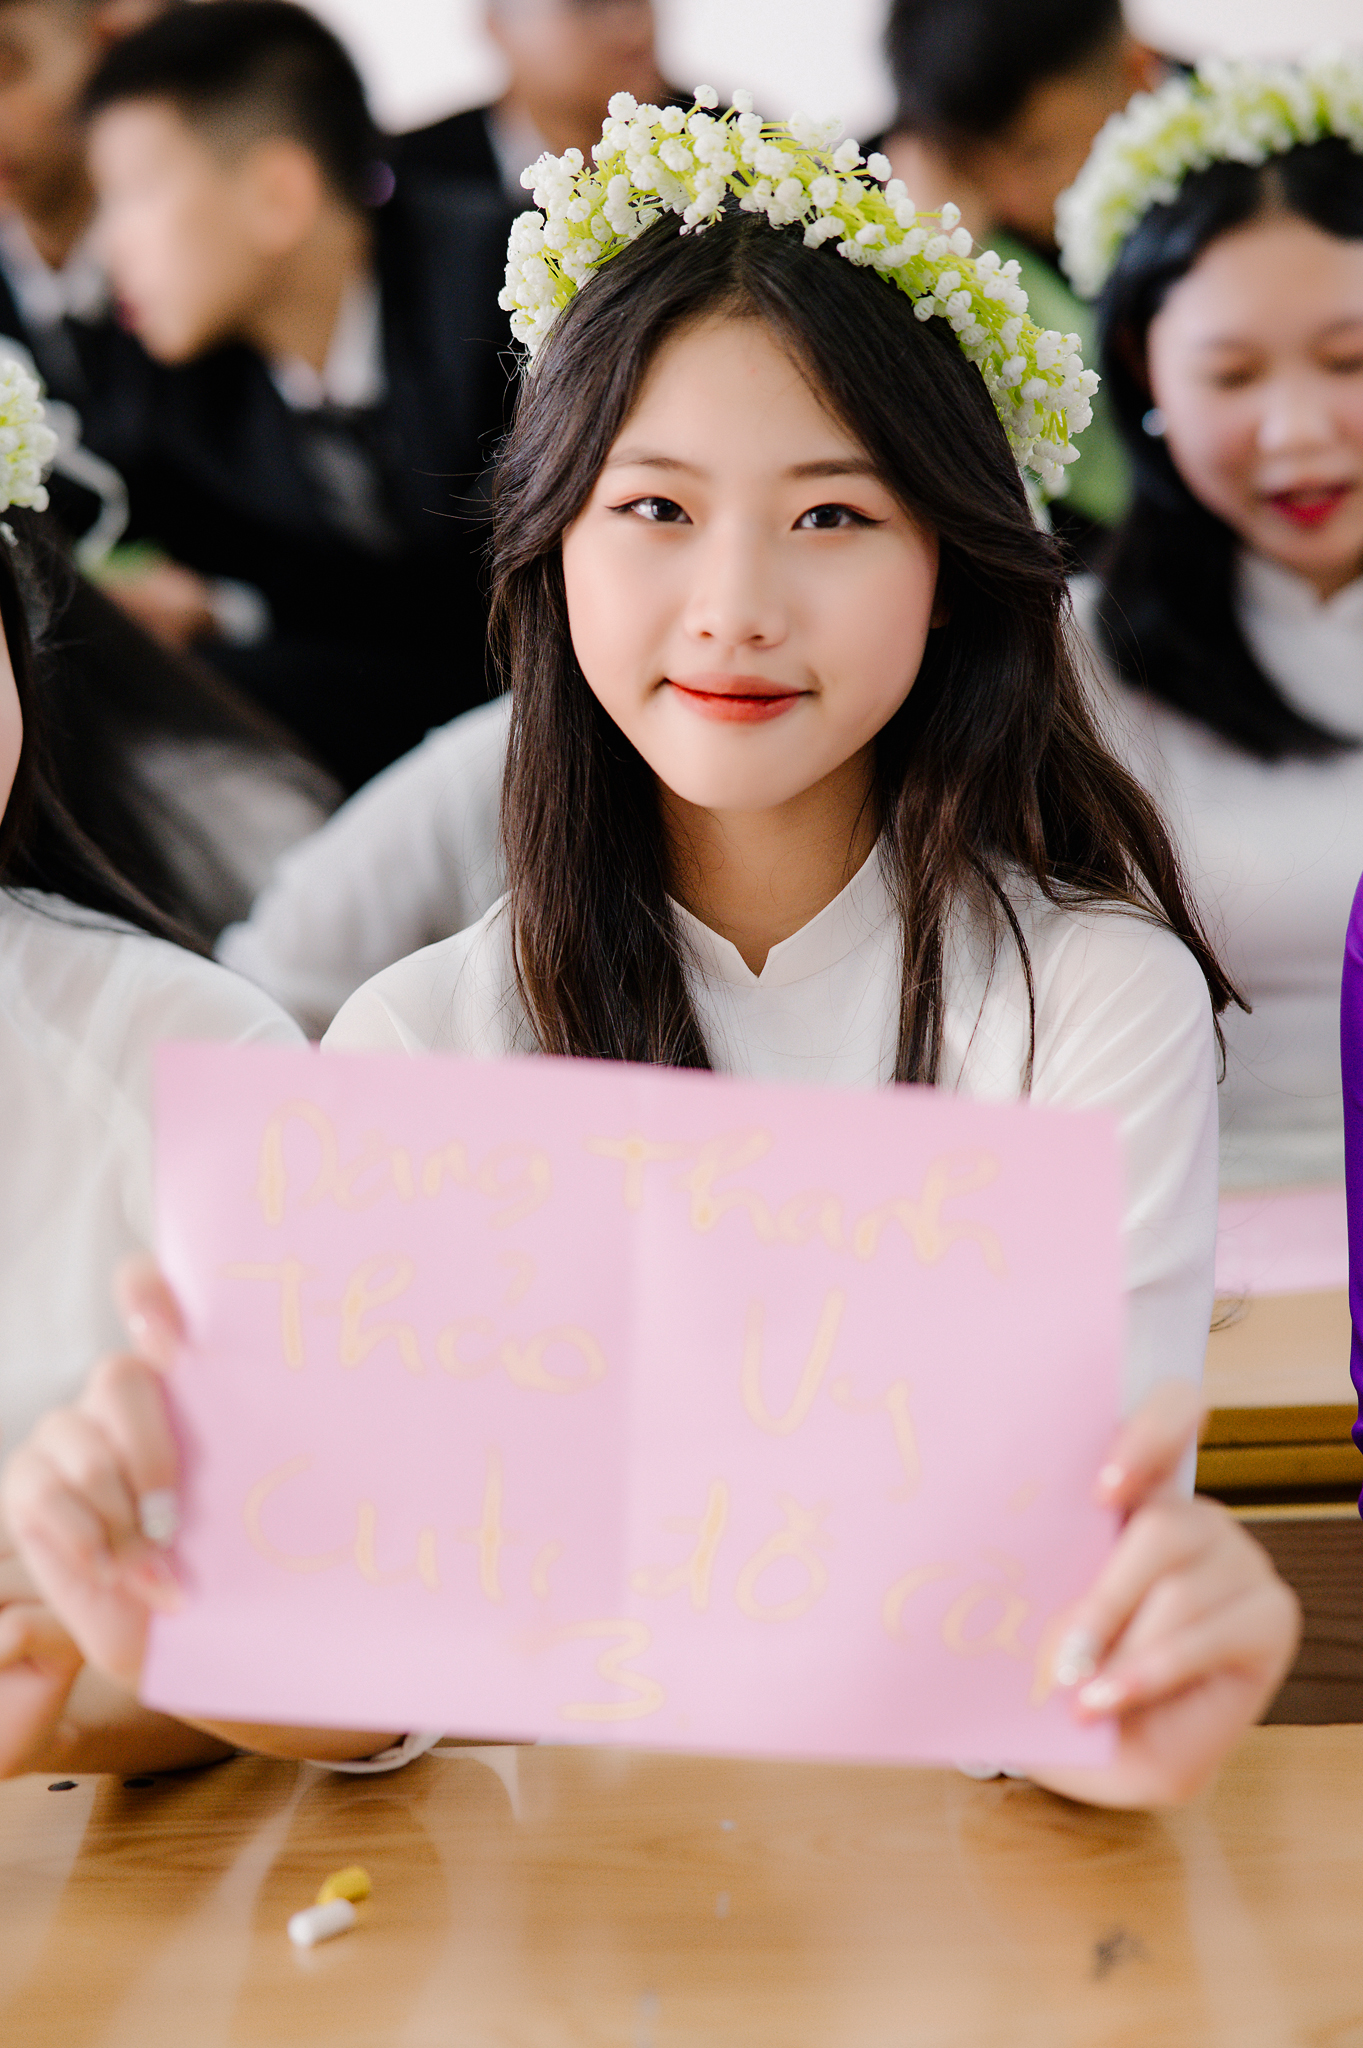 Đăng Thanh
Thảo Vy
Cute đỗ cấp
3